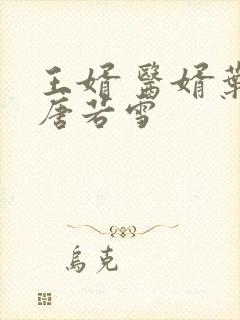 王婿 醫婿葉
唐若雪
烏克